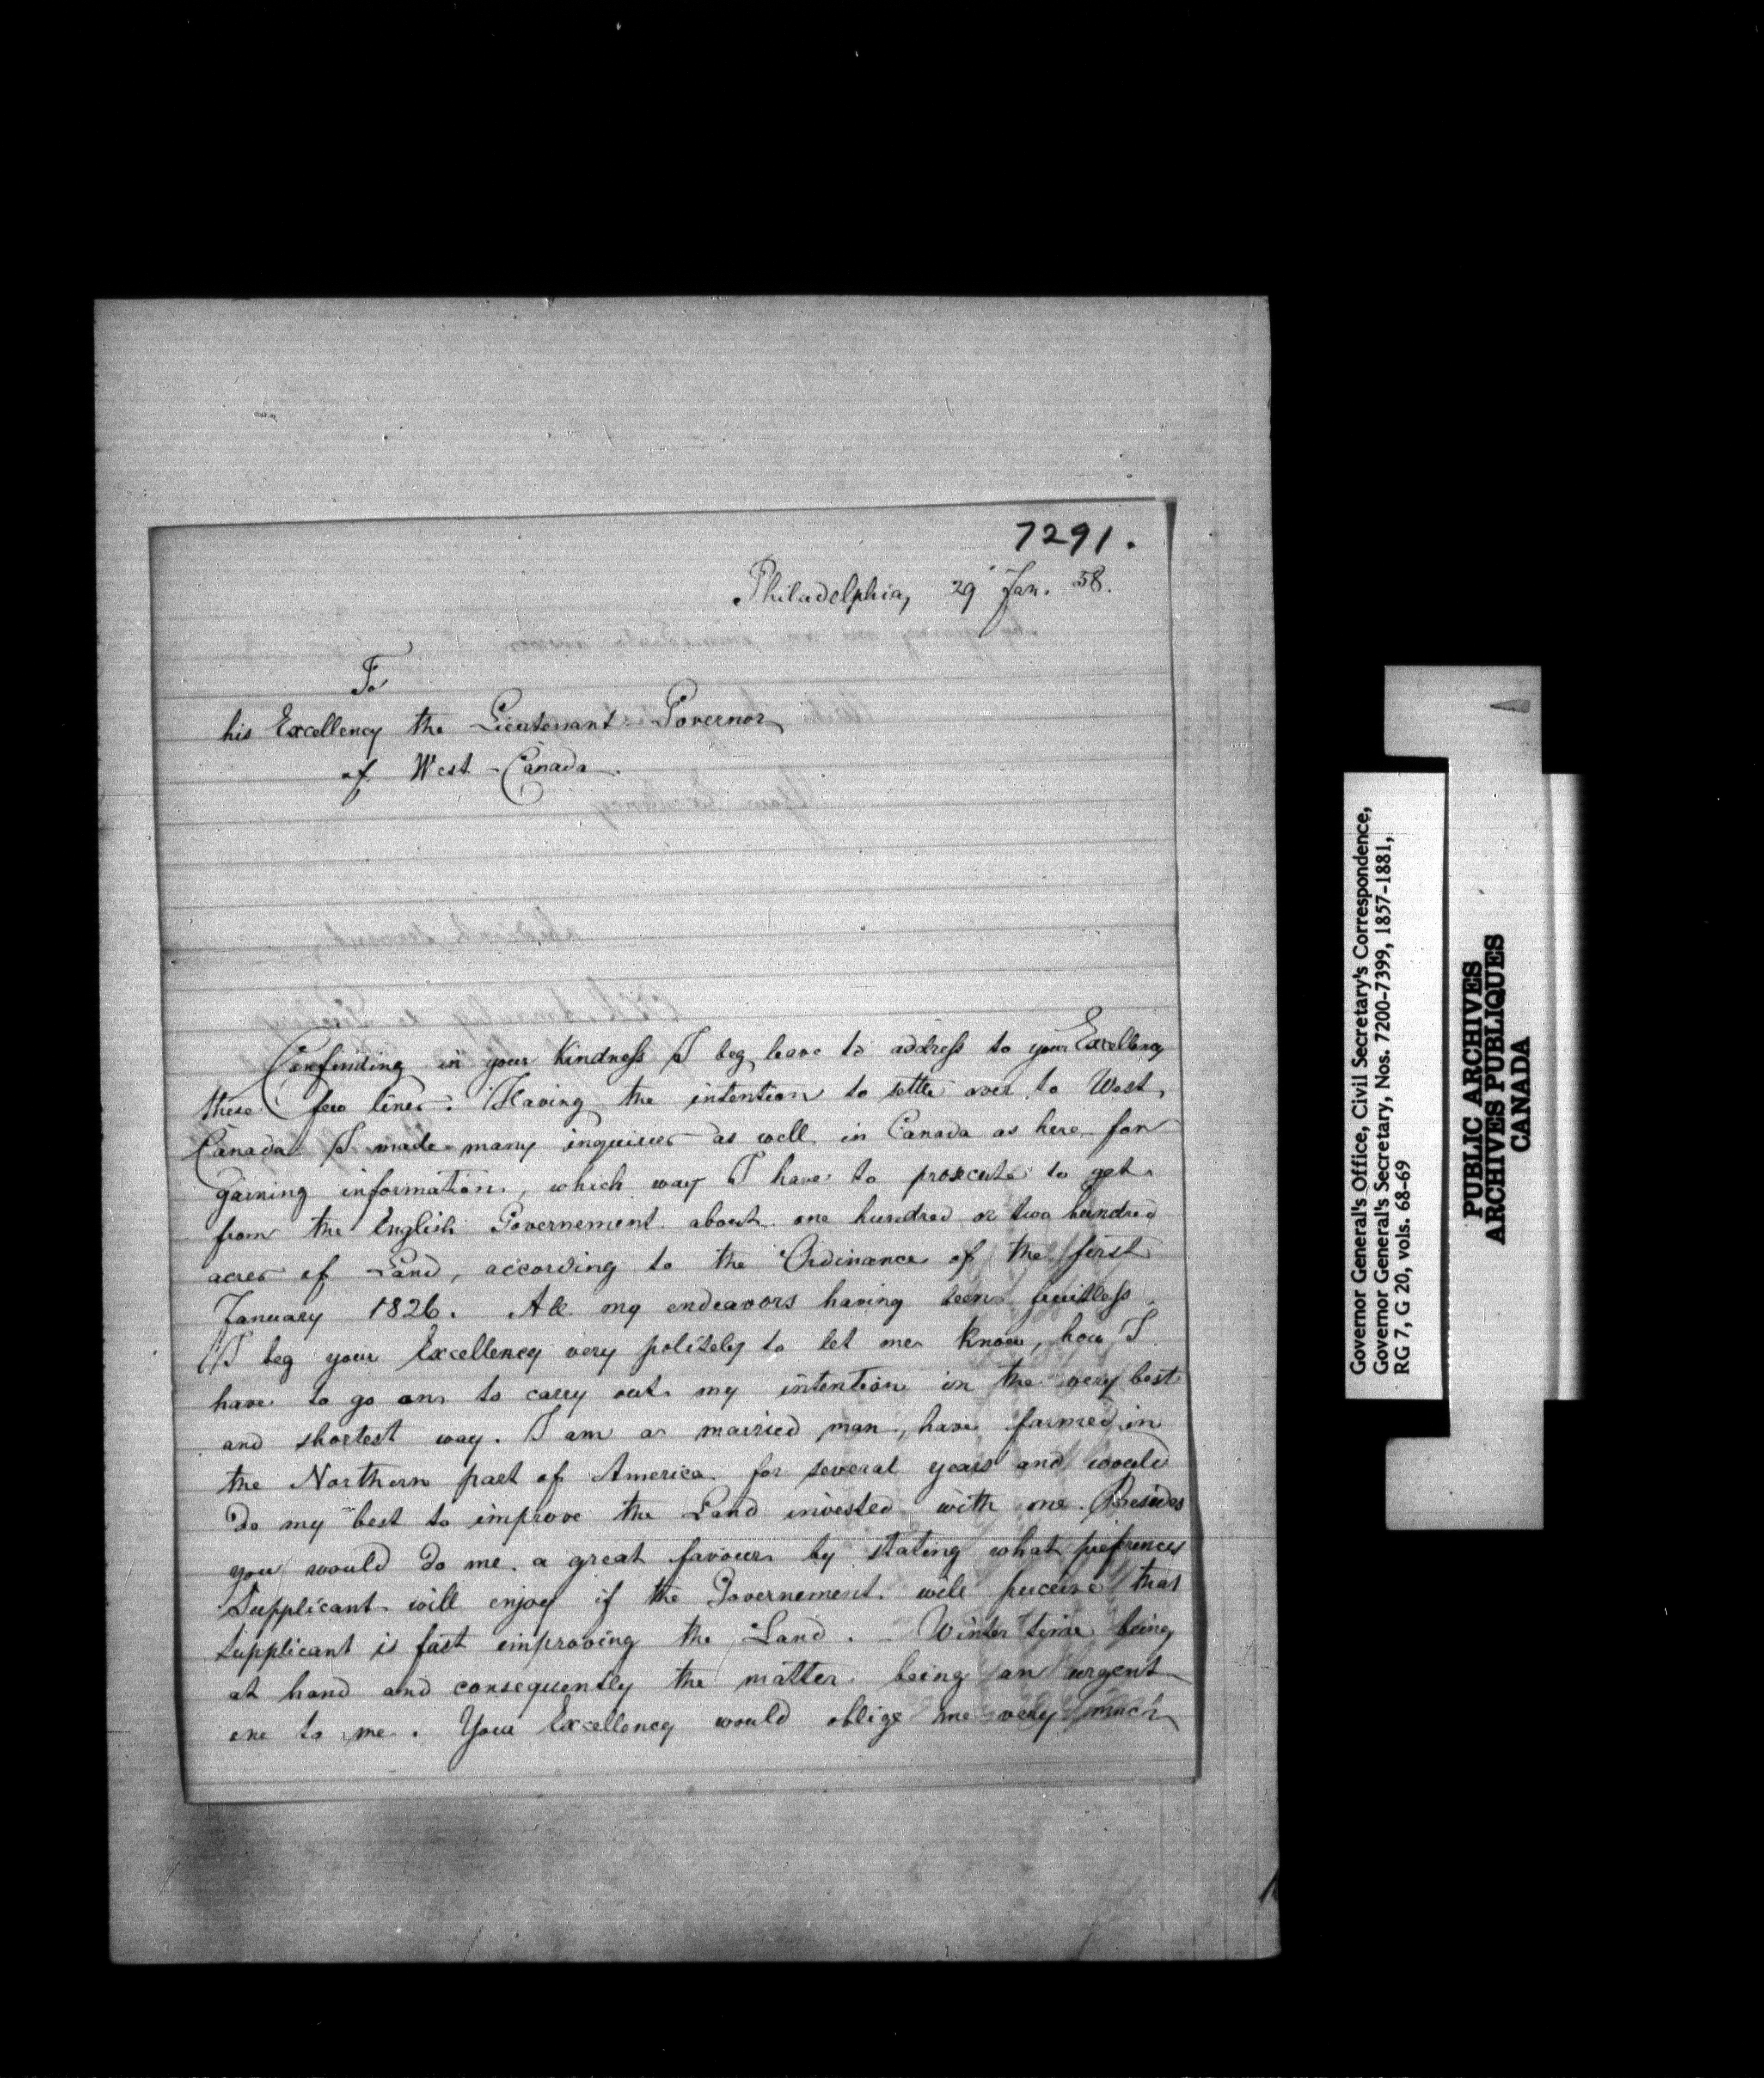 7291.
Philadelphia, 29 Jan. 58.
To
his Excellency the Lieutenant-Governor
of West-Canada.
Confiding in your Kindness I beg leave to address to your Excellency
these few lines. Having the intention to settle over to West
Canada I made many inquiries as well in Canada as here for
gaining information, which way I have to prosecute to get
from the English Governement about one hundred or two hundred
acres of Land, according to the Ordinance of the first
January 1826. All my endeavors having been fruitless
I beg your Excellency very politely to let me know, how I
have to go on to carry out my intention in the very best
and shortest way. I am a married man, have farmed in
the Northern part of America for several years and would
do my best to improve the Land invested with me. Besides
you would do me a great favour by stating what prefrences
Supplicant will enjoy if the Governement will perceive that
supplicant is fast improving the Land. Winter time being
at hand and consequently the matter being an urgent
one to me. Your Excellency would oblige me very much
Governor General's Office, Civil Secretary's Correspondence,
Governor General's Secretary, Nos. 7200-7399, 1857-1881,
RG 7, G 20, vols. 68-69
PUBLIC ARCHIVES
ARCHIVES PUBLIQUES
CANADA